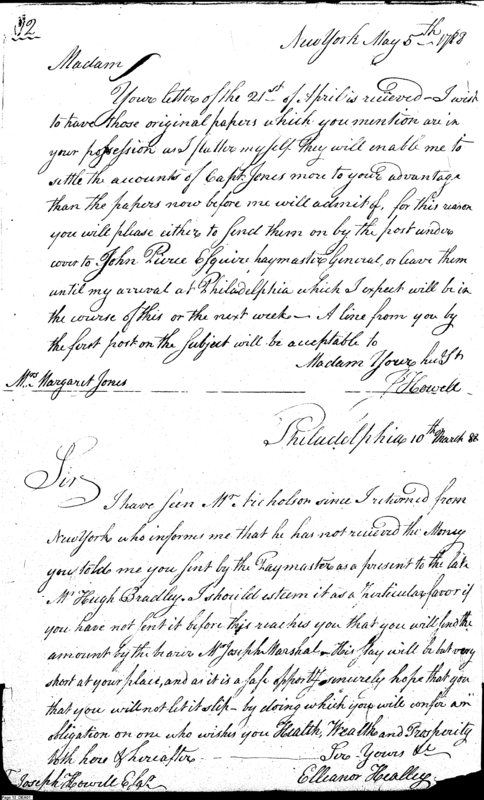 92
New York May 5th 1788
Madam
Your letter of the 21st of April is recieved - I wish
to have those original papers which you mention are in
your possession as I flatter myself they will enable me to
settle the accounts of Capt. Jones more to your advantage
than the papers now before me will admit of, for this reason
you will please either to send them on by the post under
cover to John Pierce Esquire paymaster General, or leave them
until my arrival at Philadelphia which I expect will be in
the course of this or the next week - A line from you by
the first post on the Subject will be acceptable to
Madam Your hu St
Mrs Margaret Jones
Howell
Philadelphia 10th March 88
Sir
I have seen Mr Nicholson since I returned from
New York who informes me that he has not recieved the Money
you told me you sent by the Paymaster as a present to the late
Mr Hugh Bradley. I should esteem it as a Perticular favor if
you have not sent it before this reaches you that you will send the
amount by the bearer Mr Joseph Marshal - His stay will be but very
short at your place, and as it is a safe opporty. sincerely hope that you
that you will not let it slip - by doing which you will confer an
obligation on one who wishes you Health, Wealth and Prosperity
both here & hereafter
Sir Yours &c
Joseph Howell Esqr
Elleanor Healley